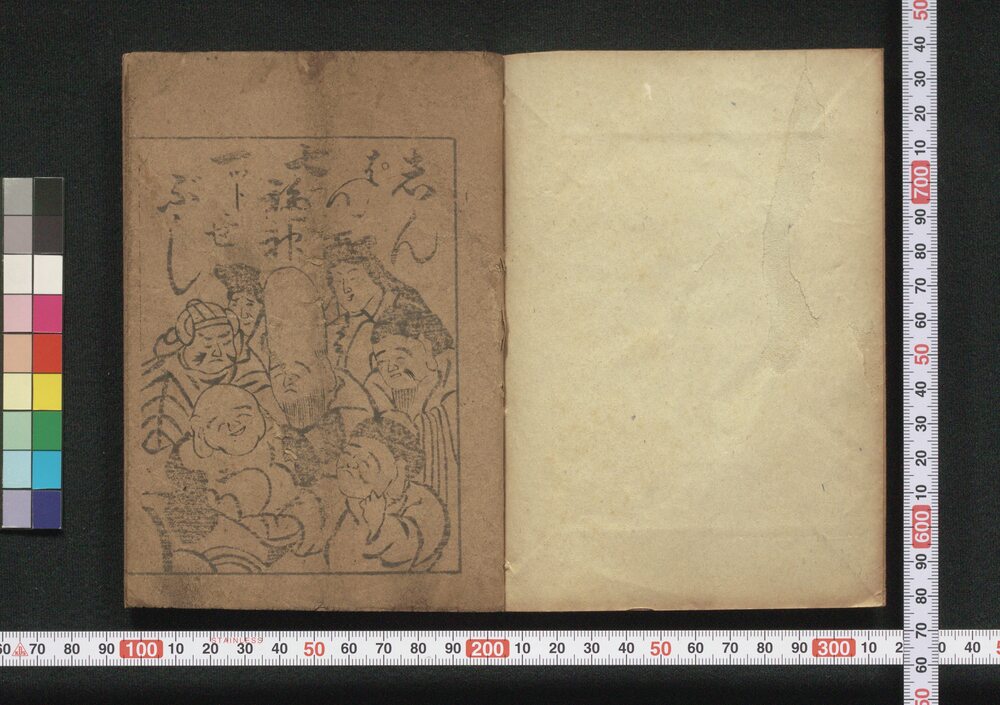 志ん
ぱん
七福神
一ツトせ
ぶし
60 70 80 90 100 10 20 30 40 50 60 70 80 90 200 10 20 30 40 50 60 70 80 90 300 10 20 30 40
STAINLESS
50 40 30 20 10 700 90 80 70 60 50 40 30 20 10 600 90 80 70 60 50